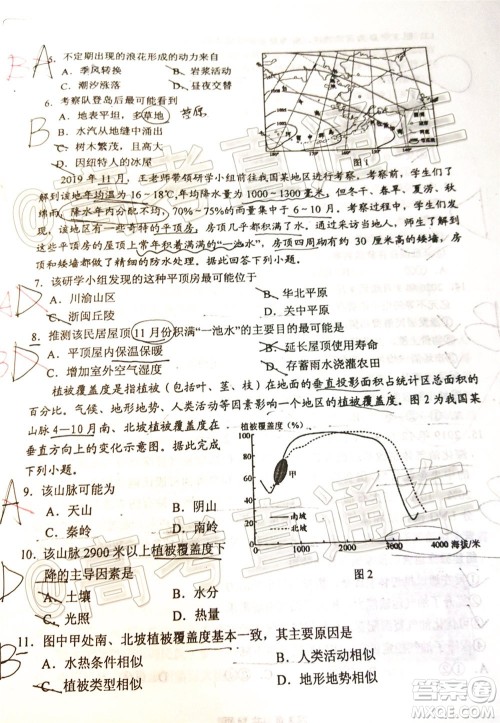 5. 不定期出现的浪花形成的动力来自
A. 季风转换 B. 岩浆活动
C. 潮汐涨落 D. 昼夜交替
6. 考察队登岛后最可能看到
A. 地表平坦，多草地
B. 水汽从地缝中涌出
C. 树木繁茂，且高大
D. 因纽特人的冰屋
图1
2019年11月，王老师带领研学小组前往我国某地区某村考察。考察前，学生们了解到
该地年均温为16～18℃，年均降水量为1000～1300毫米。但该地区冬干、春旱、夏涝、秋
绵雨，降水年内分配不均，70%～75%的雨量集中在6～10月。考察中，师生们发现该地
区存在有一些奇特的平顶房，房顶几乎都积满了一池水。通过深入了解，当地人告诉
师生，该地区的平顶房屋顶上常年积着满满的“一池水”，房顶四周砌有约30厘米高的矮墙，房
顶和矮墙都做了精细的防水处理。据此回答下列小题。
7. 该研学小组发现的这种平顶房最可能位于
A. 川渝山区 B. 华北平原
C. 浙闽丘陵 D. 关中平原
8. 推测该民居屋顶11月份积满“一池水”的主要目的最可能是
A. 平顶屋内保温保暖 B. 延长屋顶使用寿命
C. 增加室外空气湿度 D. 存蓄雨水浇灌农田
植被覆盖度是指植被（包括叶、茎、枝）在地面的垂直投影面积占统计区总面积的
百分比。气候、地形地势、人类活动等因素影响一个地区的植被覆盖度。图2为我国某
山脉4—10月南、北坡植被覆盖度在
垂直方向上的变化示意图。据此完成
下列小题。
植被覆盖度（%）
甲
南坡
北坡
0 1000 2000 3000 4000 海拔/米
图2
9. 该山脉可能为
A. 天山 B. 阴山
C. 秦岭 D. 南岭
10. 该山脉2900米以上植被覆盖度下
降的主导因素是
A. 土壤 B. 水分
C. 光照 D. 热量
11. 图中甲处南、北坡植被覆盖度基本一致，其主要原因是
A. 水热条件相似 B. 人类活动相似
C. 植被类型相似 D. 地形地势相似
@高考直通车